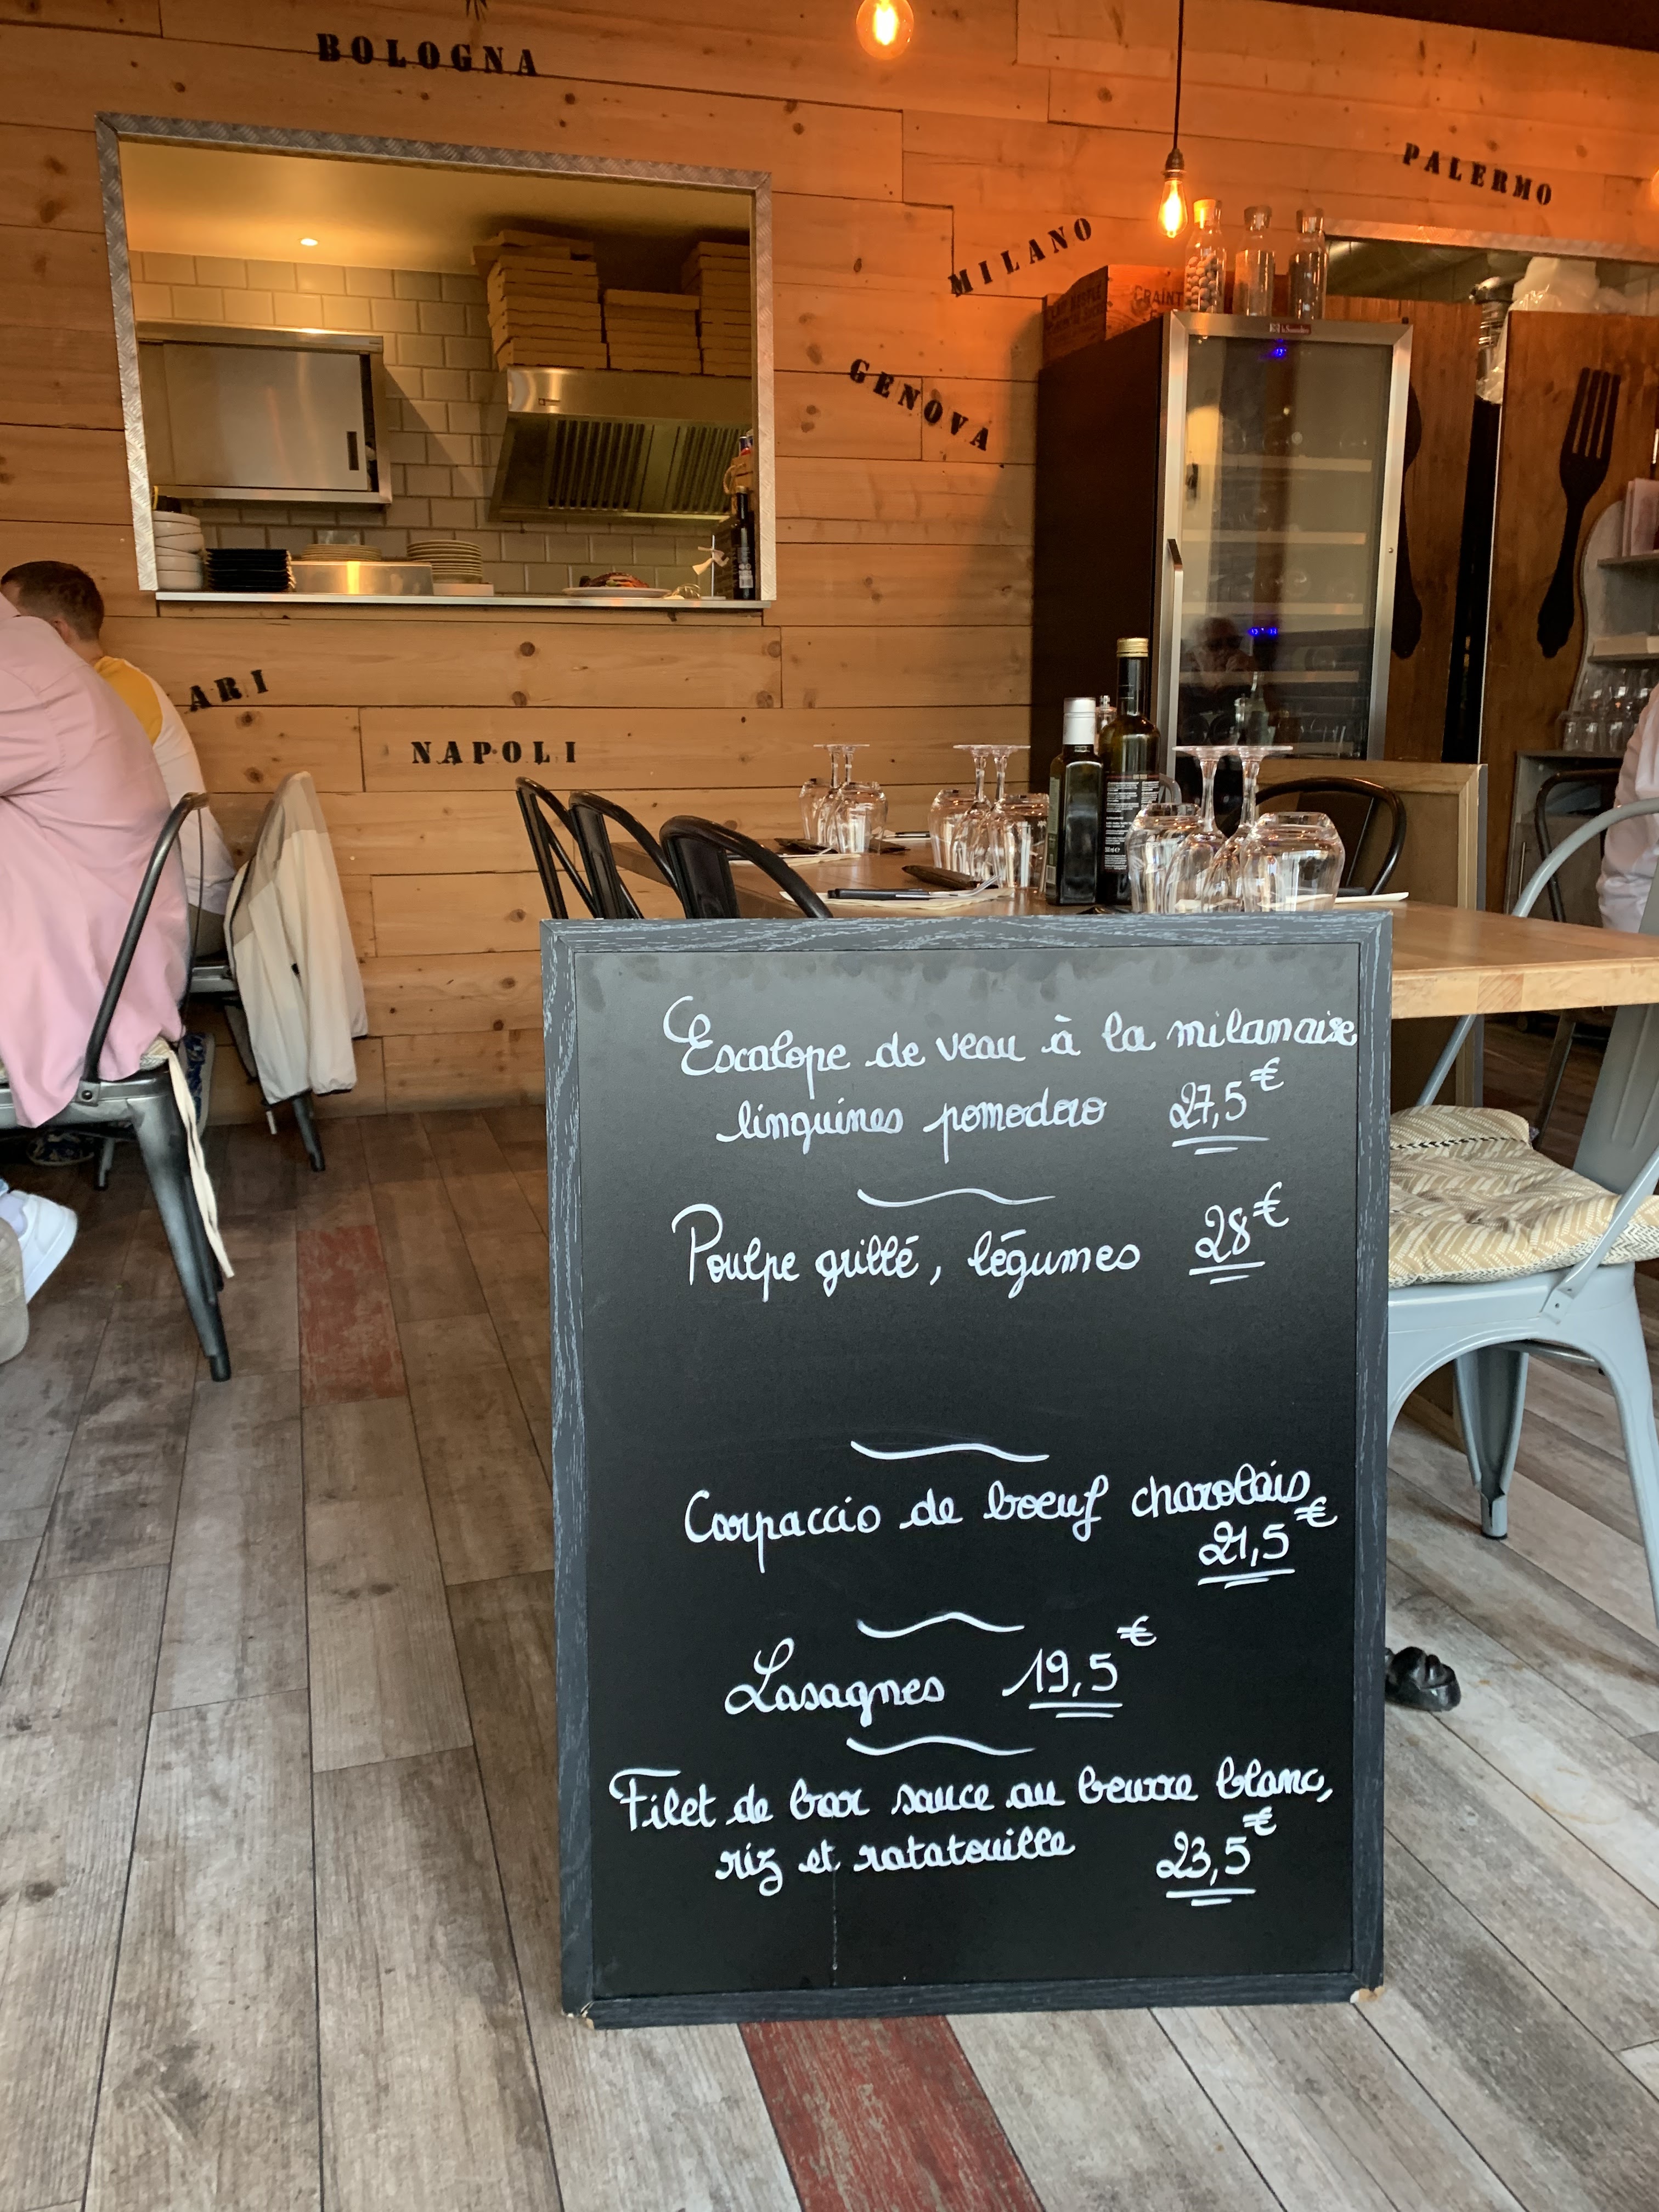 BOLOGNA
PALERMO
MILANO
GENOVA
ARI
NAPOLI
Escalope de veau à la milanaise
linguines pomodoro 27,5€
Poulpe grillé, légumes 28€
Carpaccio de boeuf charolais
21,5€
Lasagnes 19,5€
Filet de bar sauce au beurre blanc,
riz et ratatouille 23,5€